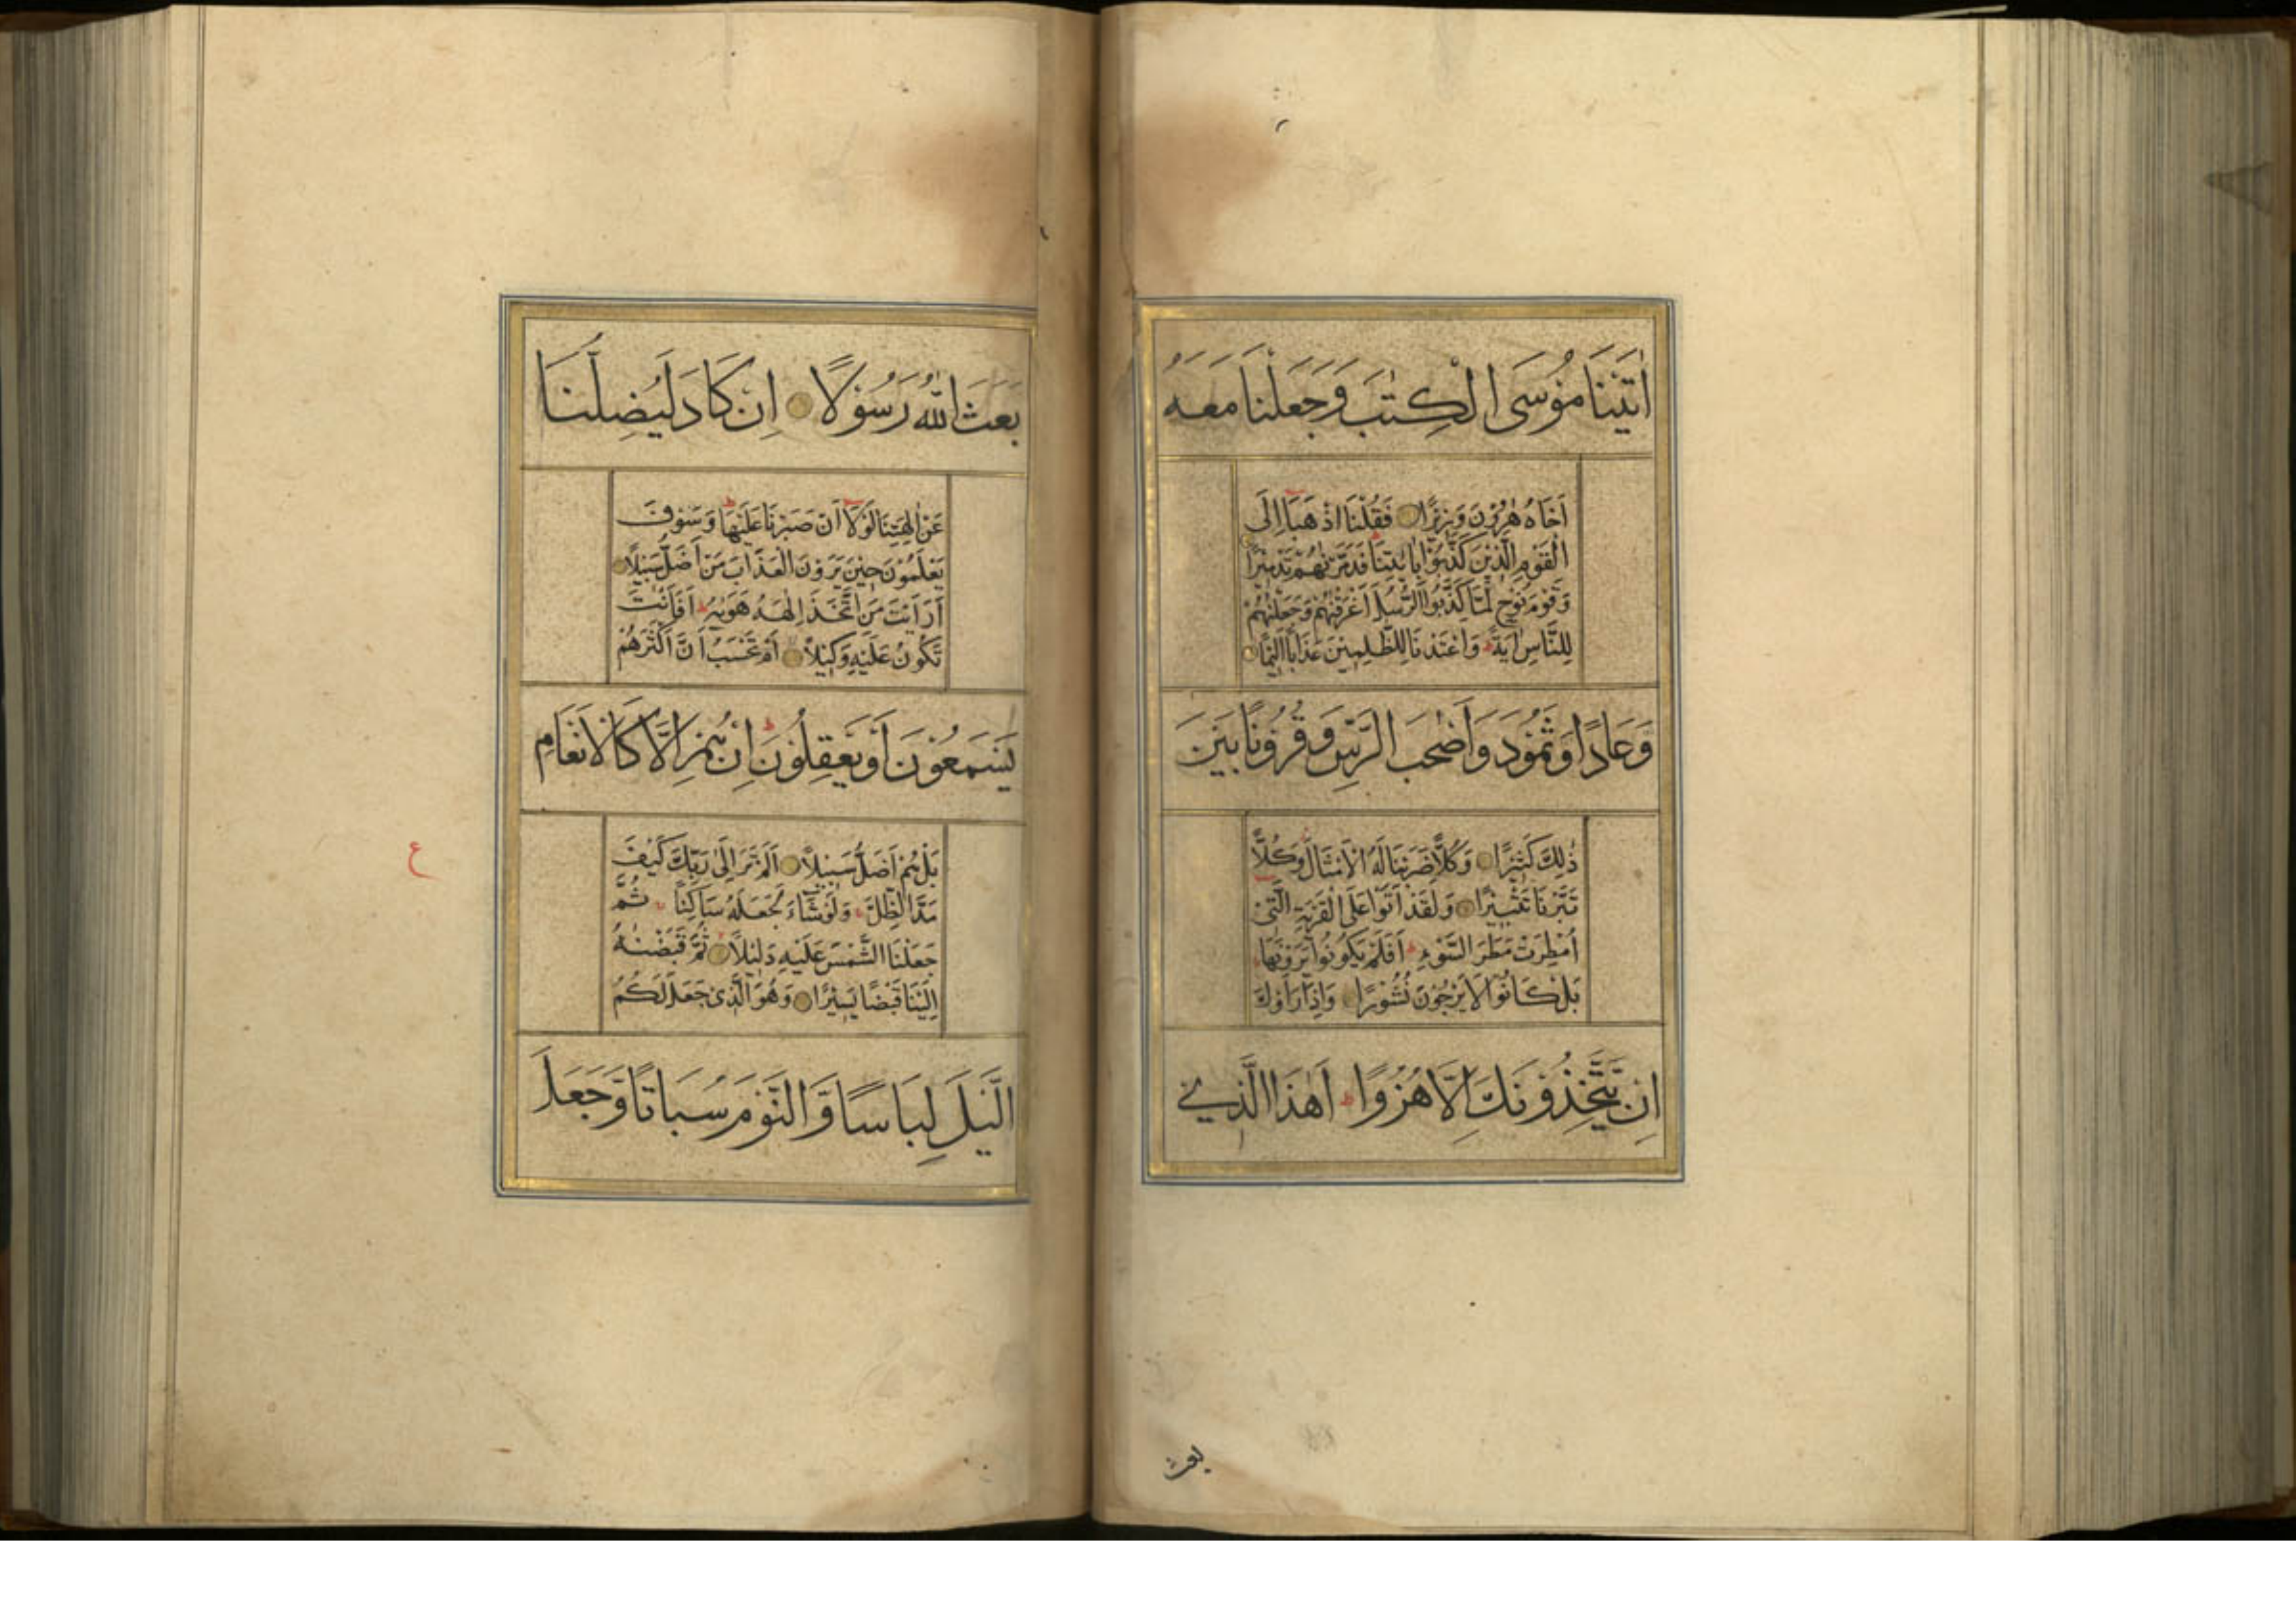 اٰتَيْنَا مُوْسَى الْكِتٰبَ وَجَعَلْنَا مَعَهُ
اَخَاهُ هٰرُوْنَ وَزِيْرًا فَقُلْنَا اذْهَبَا اِلَى
الْقَوْمِ الَّذِيْنَ كَذَّبُوْا بِاٰيٰتِنَا ط فَدَمَّرْنٰهُمْ تَدْمِيْرًا
وَقَوْمَ نُوْحٍ لَمَّا كَذَّبُوا الرُّسُلَ اَغْرَقْنٰهُمْ وَجَعَلْنٰهُمْ
لِلنَّاسِ اٰيَةً ط وَاَعْتَدْنَا لِلظّٰلِمِيْنَ عَذَابًا اَلِيْمًا
وَعَادًا وَثَمُوْدَ وَاَصْحٰبَ الرَّسِّ وَقُرُوْنًا بَيْنَ
ذٰلِكَ كَثِيْرًا وَكُلًّا ضَرَبْنَا لَهُ الْاَمْثَالَ وَكُلًّا
تَبَّرْنَا تَتْبِيْرًا وَلَقَدْ اَتَوْا عَلَى الْقَرْيَةِ الَّتِيْ
اُمْطِرَتْ مَطَرَ السَّوْءِ ط اَفَلَمْ يَكُوْنُوْا يَرَوْنَهَا
بَلْ كَانُوْا لَا يَرْجُوْنَ نُشُوْرًا وَاِذَا رَاَوْكَ
اِنْ يَتَّخِذُوْنَكَ اِلَّا هُزُوًا ط اَهٰذَا الَّذِيْ
بعث
بَعَثَ اللّٰهُ رَسُوْلًا اِنْ كَادَ لَيُضِلُّنَا
عَنْ اٰلِهَتِنَا لَوْلَا اَنْ صَبَرْنَا عَلَيْهَا ط وَسَوْفَ
يَعْلَمُوْنَ حِيْنَ يَرَوْنَ الْعَذَابَ مَنْ اَضَلُّ سَبِيْلًا
اَرَاَيْتَ مَنِ اتَّخَذَ اِلٰهَهُ هَوٰيهُ ط اَفَاَنْتَ
تَكُوْنُ عَلَيْهِ وَكِيْلًا اَمْ تَحْسَبُ اَنَّ اَكْثَرَهُمْ
يَسْمَعُوْنَ اَوْ يَعْقِلُوْنَ ط اِنْ هُمْ اِلَّا كَالْاَنْعَامِ
بَلْ هُمْ اَضَلُّ سَبِيْلًا اَلَمْ تَرَ اِلٰى رَبِّكَ كَيْفَ
ع
مَدَّ الظِّلَّ وَلَوْ شَاءَ لَجَعَلَهُ سَاكِنًا ثُمَّ
جَعَلْنَا الشَّمْسَ عَلَيْهِ دَلِيْلًا ثُمَّ قَبَضْنٰهُ
اِلَيْنَا قَبْضًا يَسِيْرًا وَهُوَ الَّذِيْ جَعَلَ لَكُمُ
الَّيْلَ لِبَاسًا وَّالنَّوْمَ سُبَاتًا وَّجَعَلَ